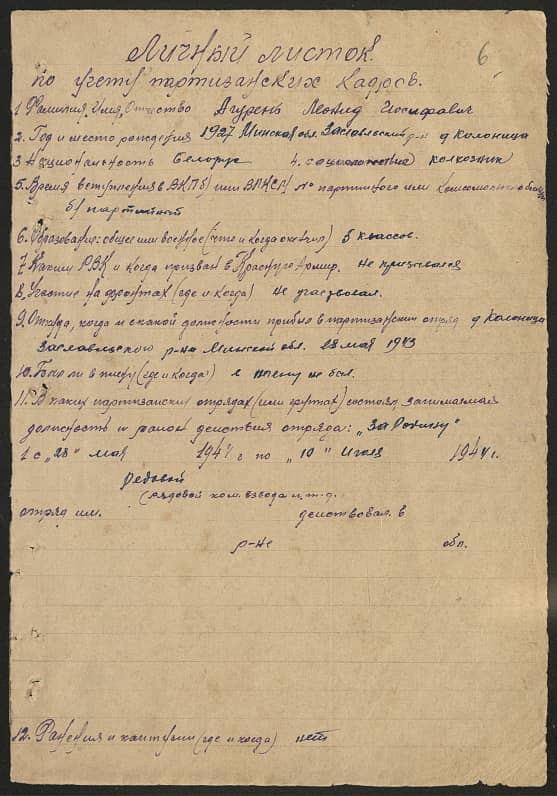 6
Личный листок
по учету партизанских кадров.
1. Фамилия, Имя, Отчество Агурень Леонид Иосифович
2. Год и место рождения 1927 Минская обл. Заславльский р-н д Колоница
3. Национальность белорус 4. колхозник
5. Время вступления в ВКП(б) или ВЛКСМ № партийного или комсомольского
б/партийный
6. Образование: общее или военное (где и когда окончил) 5 классов.
7. Каким РВК и когда призван в Красную Армию. не призывался
8. Участие на фронтах (где и когда) не участвовал.
9. Откуда, когда и с какой должности прибыл в партизанский отряд д Колоница
Заславльского р-на Минской обл. 28 мая 1943
10. Был ли в плену (где и когда) в плену не был.
11. В каких партизанских отрядах (или группах) состоял занимаемая
должность и район действия отряда: "За Родину"
1 с "28" мая 194 г по "10" июля 1944 г.
Редовой
(рядовой ком. взвода и т.д.
отряд им. действовал в
р-не обл.
12. Ранения и контузии (где и когда) нет